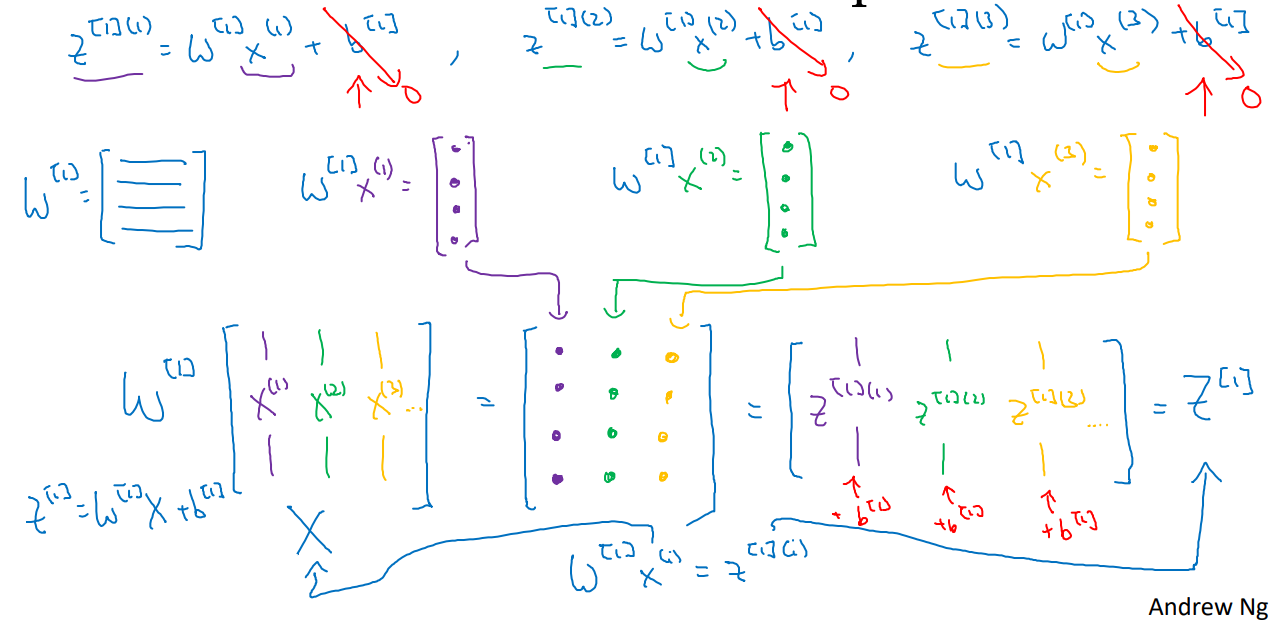 z^[1](1) = W^[1] x^(1) + b^[1] → 0 , z^[1](2) = W^[1] x^(2) + b^[1] → 0 , z^[1](3) = W^[1] x^(3) + b^[1] → 0
W^[1] = [ ] W^[1] x^(1) = [ ] W^[1] x^(2) = [ ] W^[1] x^(3) = [ ]
W^[1] [ x^(1) x^(2) x^(3) ... ] = [ ] = [ z^[1](1) z^[1](2) z^[1](3) .... ] = Z^[1]
z^[1] = W^[1] X + b^[1] X + b^[1] + b^[1] + b^[1]
W^[1] x^(i) = z^[1](i)
Andrew Ng